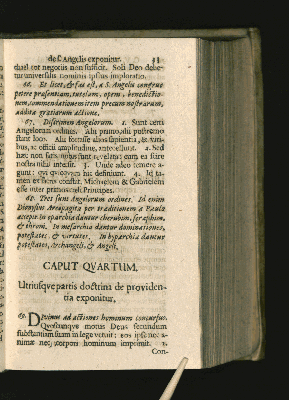 de S. Angelis exponitur. 33
chael tot negotiis non sufficit. Soli Deo debe-
tur universalis nominis ipsius imploratio.
66. Et licet, & fas est, a S. Angelis congrue
petere præsentiam, tutelam, opem, benedictio-
nem, commendationem item precum nostrarum,
addita gratiarum actione.
67. Discrimen Angelorum. 1. Sunt certi
Angelorum ordines. Alii primo, alii postremo
stant loco. Alii forasse aliossapientia, & viri-
bus, ac officii amplitudine, antecellunt. 2. Sed
hæc non satis nobis sunt revelata: cum ex scire
nostra nihil intersit. 3. Unde adeo temere a-
gunt: qui quovorum hic definiunt. 4. Id ta-
men ex sacris constat. Michaelem & Gabrielem
esse inter primores seu Principes.
68. Tres sunt Angelorum ordines. Id enim
Dionysius Areopagita per traditionem a Paulo
accepit. In eparchia dantur cherubim, seraphim,
& throni. In mesarchia dantur dominationes,
potestates, & virtutes. In hyparchia dantur
potestates, Archangeli, & Angeli.
CAPUT QVARTUM,
Utriusque partis doctrina de providen-
tia exponitur.
69. Divinus ad actiones hominum concursus.
Quoscunque motus Deus secundum
substantiam suam in lege vetuit: eos ipse nec a-
nimæ nec corpori hominum imponit. 1.
Con-